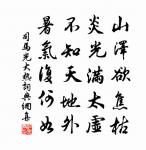 山澤欲焦枯
炎光滿太虛
不知天地外
暑氣復何如
司馬光大熱詞典網集